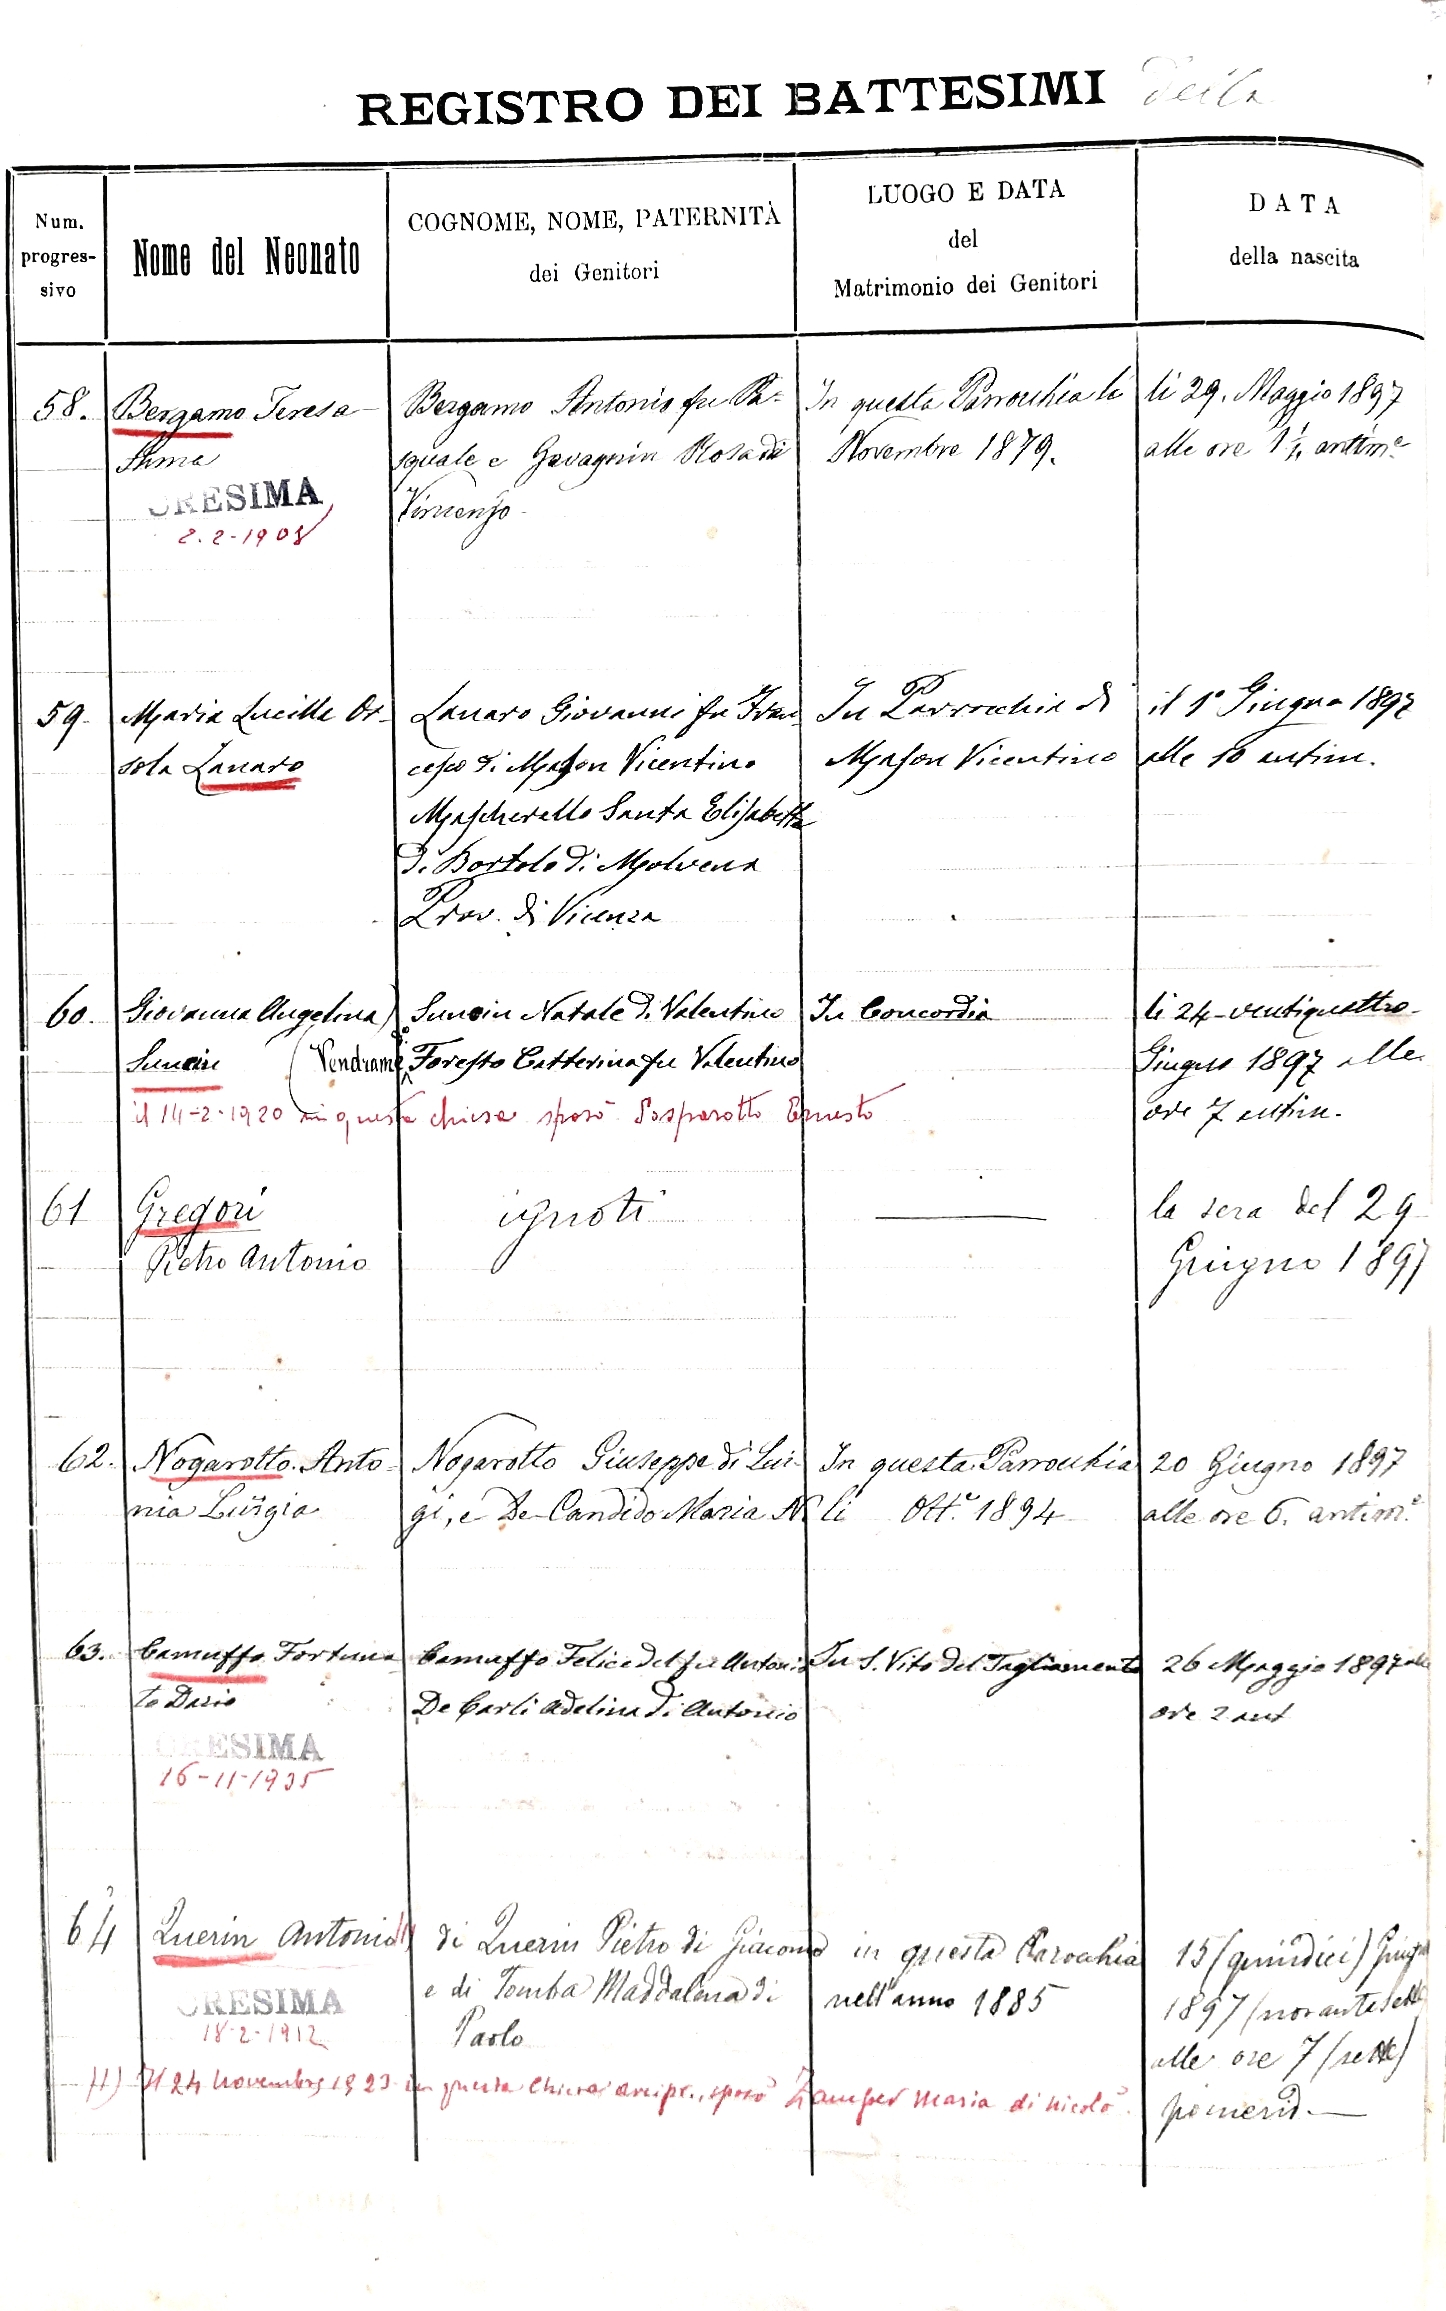 REGISTRO DEI BATTESIMI della
Num.
progres-
sivo
Nome del Neonato
COGNOME, NOME, PATERNITÀ
dei Genitori
LUOGO E DATA
del
Matrimonio dei Genitori
DATA
della nascita
58.
Bergamo Teresa
Anna
CRESIMA
2.2-1908
Bergamo Antonio fu Pa-
squale e Gavagnin Rosa di
Vincenzo
In questa Parrochia li
Novembre 1879.
li 29. Maggio 1897
alle ore 1½ antime
59.
Maria Lucilla Or-
sola Lanaro
Lanaro Giovanni fu Fran
cesco di Mason Vicentino
Mascherello Santa Elisabetta
di Bortolo di Molvena
Prov. di Vicenza
In Parrochia di
Mason Vicentino
il 1° Giugno 1897
alle 10 antim.
60.
Giovanna Angelina)
Suncin (Vendrame
Suncin Natale di Valentino
Foresto Catterina fu Valentino
In Concordia
li 24-ventiquattro-
Giugno 1897 alle
ore 7 antim.
il 14-2-1920 in questa chiesa sposò Pasparotto Ernesto
61
Gregori
Pietro Antonio
ignoti
la sera del 29
Giugno 1897
62.
Nogarotto Anto-
nia Luigia
Nogarotto Giuseppe di Lui-
gi, e De Candido Maria N
In questa Parrochia
li Ott.e 1894
20 Giugno 1897
alle ore 6. antim.e
63.
Camuffo Fortuna
to Dario
CRESIMA
16-11-1935
Camuffo Felice del fu Antonio
De Carli Adelina di Antonio
In S. Vito del Tagliamento
26 Maggio 1897 alle
ore 2 ant
64
Querin Antonio
CRESIMA
18-2-1912
di Querin Pietro di Giacomo
e di Tomba Maddalena di
Paolo
in questa Parochia
nell'anno 1885
15 (quindici) Giugno
1897 (novantasette)
alle ore 7 (sette)
pomerid.
H) Il 24 Novembre 1923 in questa Chiesa arcipr., sposò Zamper Maria di Nicolò.